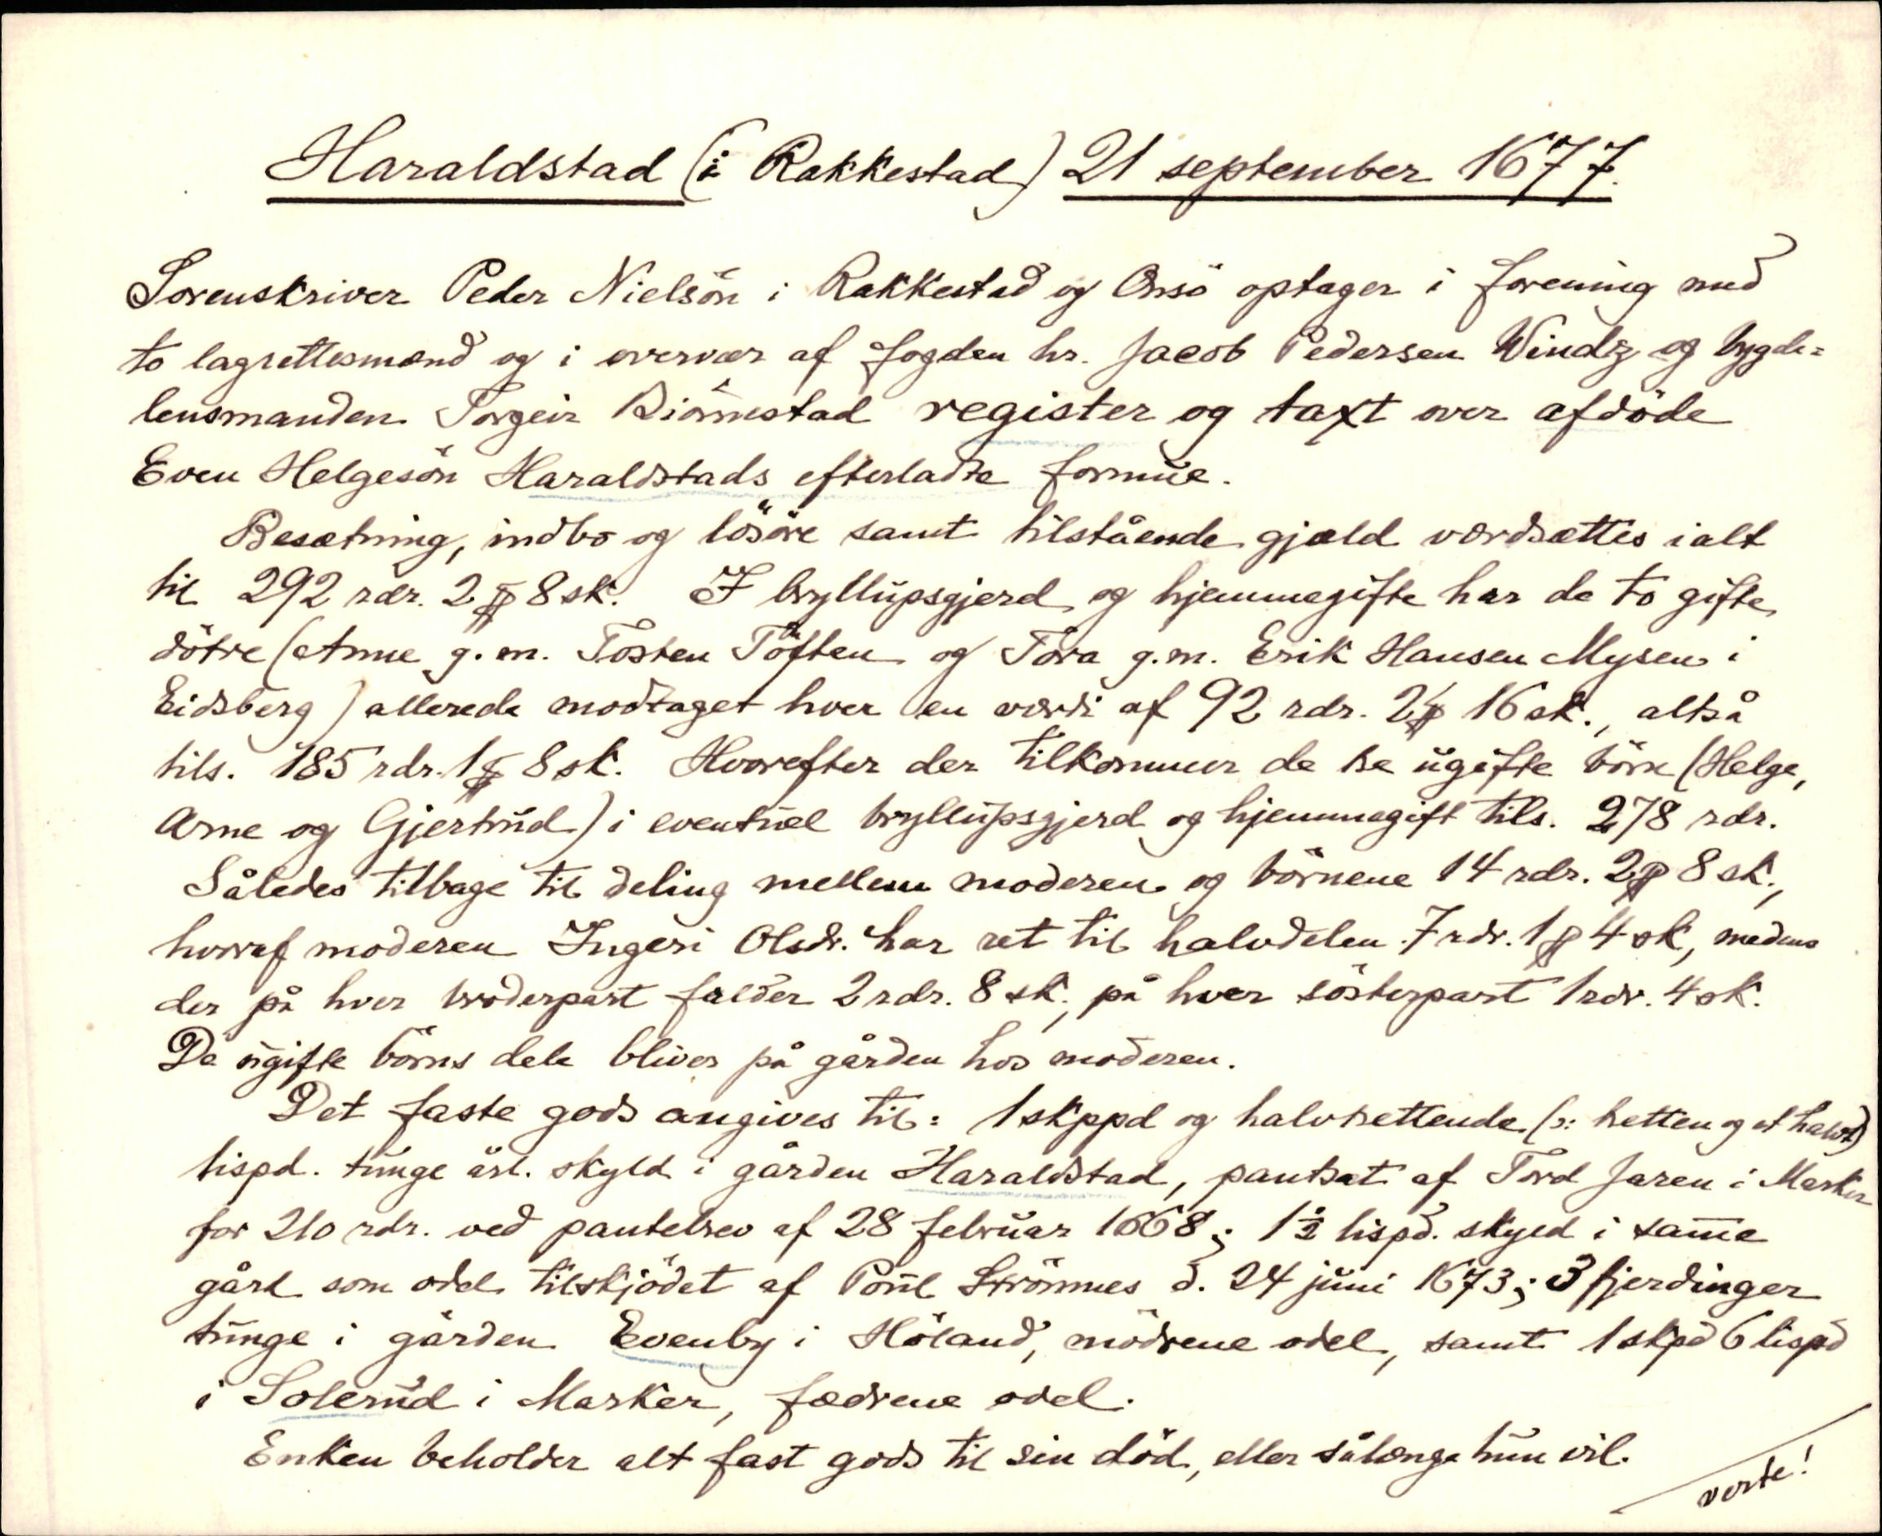 Haraldstad (i Rakkestad) 21 september 1677.
Sorenskriver Peder Nielsön i Rakkestad og Onsö optager i forening med
to lagrettesmænd og i overvær af fogden hr. Jacob Pedersen Windz og bygde-
lensmanden Torgeir Biörnestad register og taxt over afdöde
Even Helgesön Haraldstads efterladte formue.
Besætning, indbo og lösöre samt tilstående gjæld værdsættes ialt
til 292 rdr. 2 ƒ 8 sk. I bryllupsgjerd og hjemmegifte har de to gifte
dötre (Anne g. m. Tosten Töften og Tora g.m. Erik Hansen Mysen i
Eidsberg) allerede modtaget hver en værdi af 92 rdr. 2 ƒ 16 sk., altså
tils. 185 rdr. 1 ƒ 8 sk. Hvorefter der tilkommer de tre ugifte börn (Helge,
Arne og Gjertrud) i eventuel bryllupsgjerd og hjemmegift tils. 278 rdr.
Således tilbage til deling mellem moderen og börnene 14 rdr. 2 ƒ 8 sk.,
hvoraf moderen Ingeri Olsdr. har ret til halvdelen 7 rdr. 1 ƒ 4 sk, medens
der på hver broderpart falder 2 rdr. 8 sk., på hver sösterpart 1 rdr. 4 sk.
De ugifte börns dele bliver på gården hos moderen.
Det faste gods angives til: 1 skppd og halvtrettende (ɔ: tretten og et halvt)
lispd. tunge årl. skyld i gården Haraldstad, pantsat af Tord Jaren i Marker
for 210 rdr. ved pantebrev af 28 februar 1668; 1½ lispd. skyld i samme
gård som odel tilskjödet af Poul Strömnes d. 24 juni 1673; 3 fjerdinger
tunge i gården Evenby i Höland, mödrene odel, samt 1 skpd 6 lispd
i Solerud i Marker, fædrene odel.
Enken beholder alt fast gods til sin död, eller sålænge hun vil.
verte!